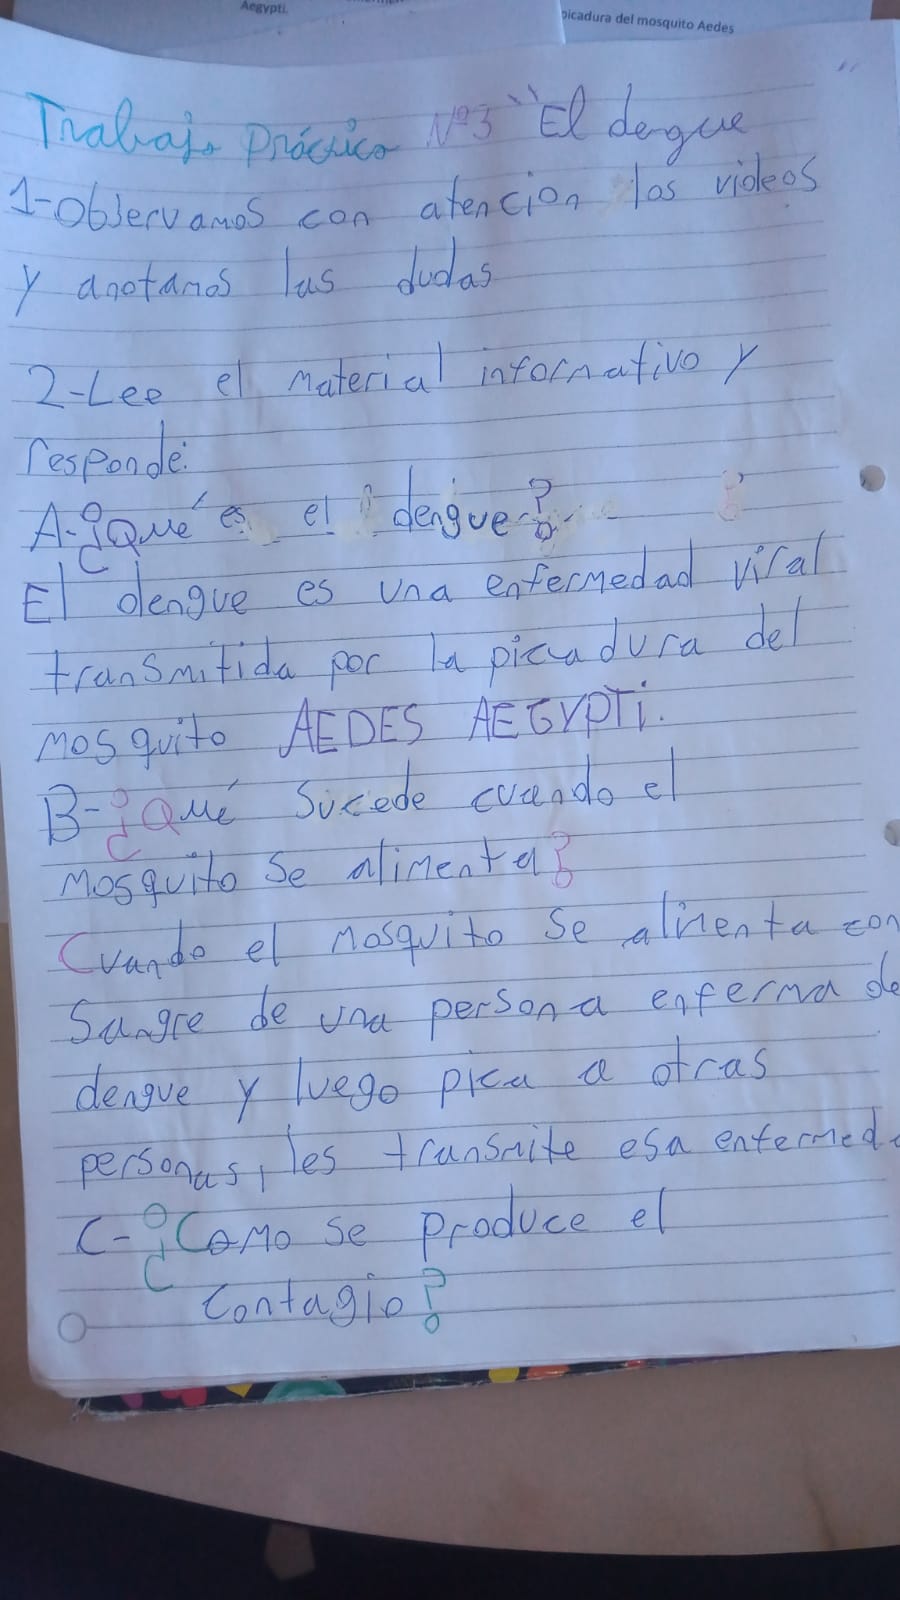 Aegypti.
picadura del mosquito Aedes
Trabajo Práctico Nº3 "El dengue"
1-Observamos con atencion los videos
y anotamos las dudas
2-Lee el material informativo y
responde:
A-¿Qué es el dengue?
El dengue es una enfermedad viral
transmitida por la picadura del
mosquito AEDES AEGYPTi.
B-¿Qué Sucede cuando el
mosquito se alimenta?
Cuando el mosquito se alimenta con
Sangre de una persona enferma de
dengue y luego pica a otras
personas, les transmite esa enfermed
C-¿Como se produce el
Contagio?